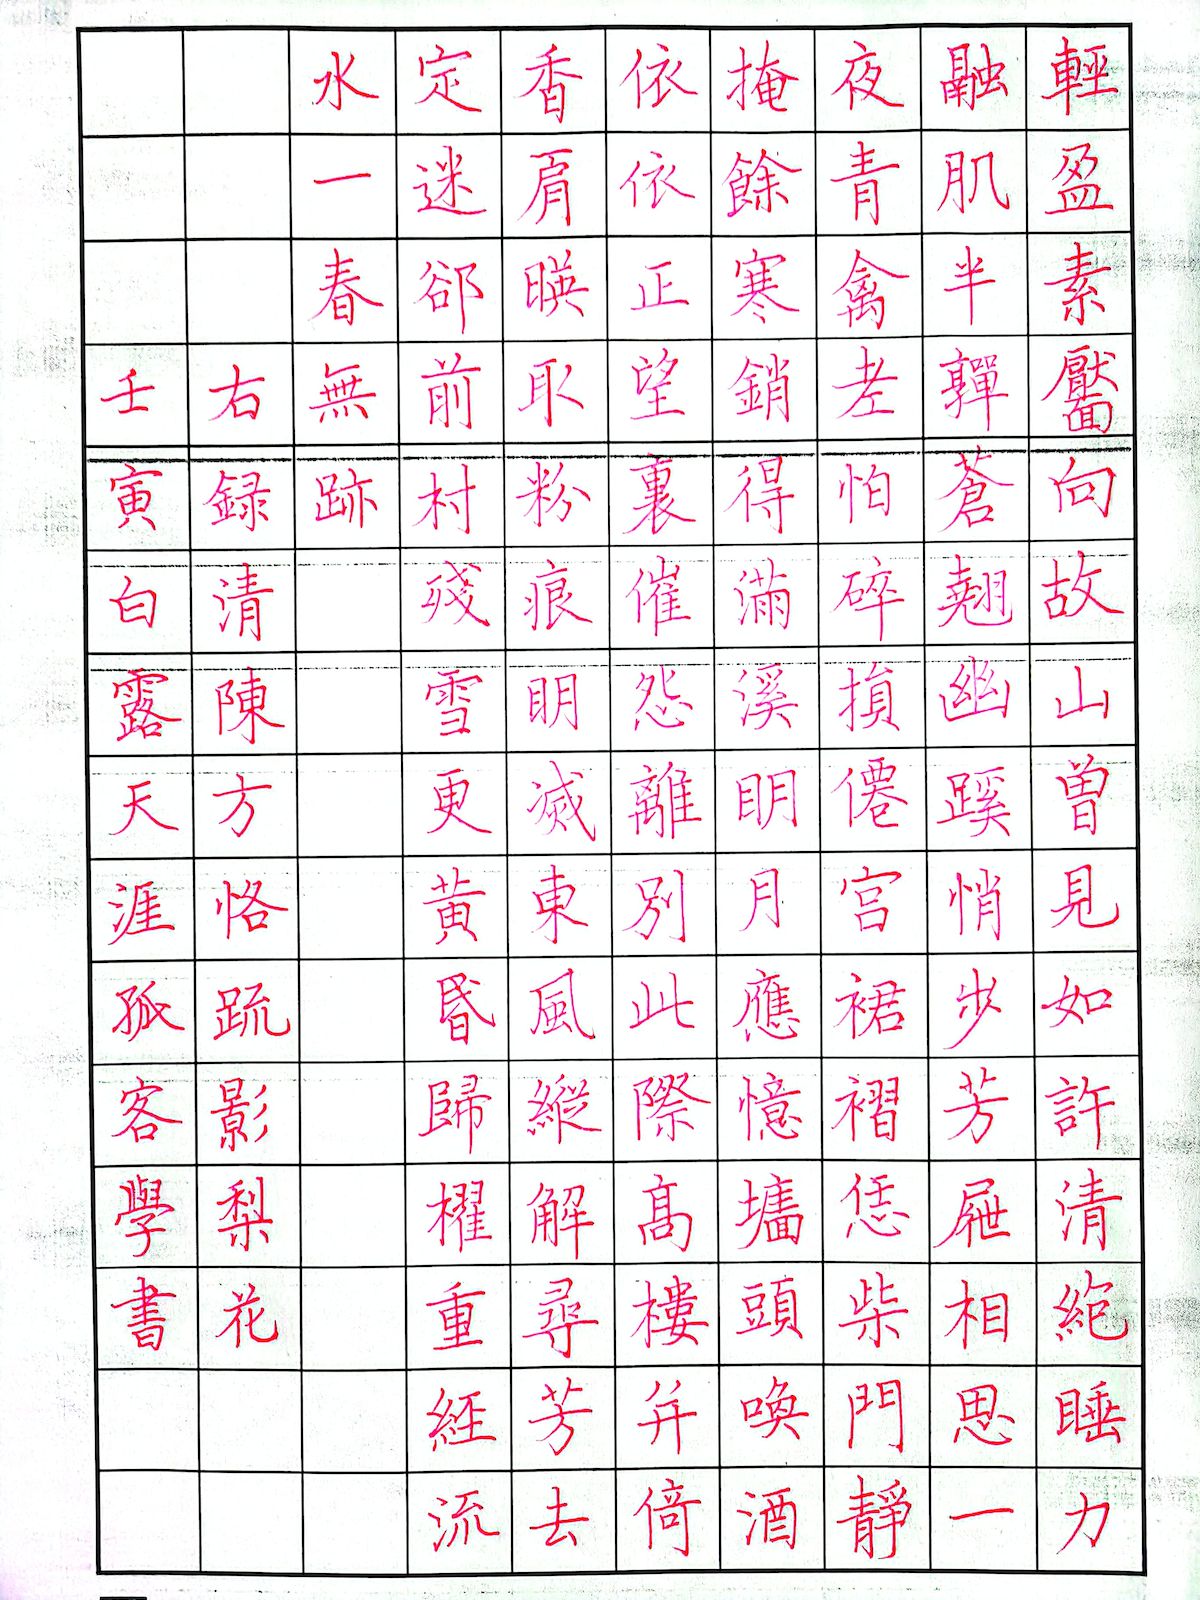 輕盈素靨向故山曽見如許清絕睡力
融肌半嚲蒼翹幽蹊悄步芳屧相思一
夜青禽老怕碎損僊宫裙褶恁柴門靜
掩餘寒銷得滿溪明月應憶墻頭喚酒
依依正望裏催怨離別此際高樓并倚
香肩暎取粉痕明滅東風縱解尋芳去
定迷卻前村殘雪更黄昏歸櫂重經流
水一春無跡
右録清陳方恪疏影梨花
壬寅白露天涯孤客學書